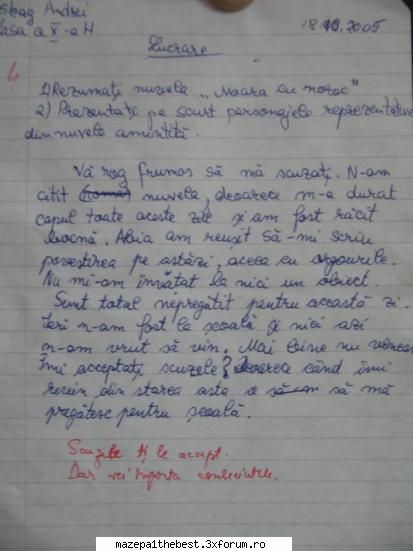 Andrei
a X-a H
18.10.2005
Lucrare
4
1) Rezumați nuvela „Moara cu noroc”
2) Prezentați pe scurt personajele reprezentative
din nuvela amintită.
Vă rog frumos să mă scuzați. N-am
citit nuvela, deoarece m-a durut
capul toate aceste zile și am fost răcit
bocnă. Abia am reușit să-mi scriu
povestirea pe astăzi, aceea cu
Nu mi-am învățat la nici un obiect.
Sunt total nepregătit pentru această zi.
Ieri n-am fost la școală și nici azi
n-am vrut să vin. Mai bine nu
Îmi acceptați scuzele? deoarece când îmi
revin din starea asta o să să mă
pregătesc pentru școală.
Scuzele ți le accept.
Dar vei suporta consecințele.
mazepa1thebest.3xforum.ro